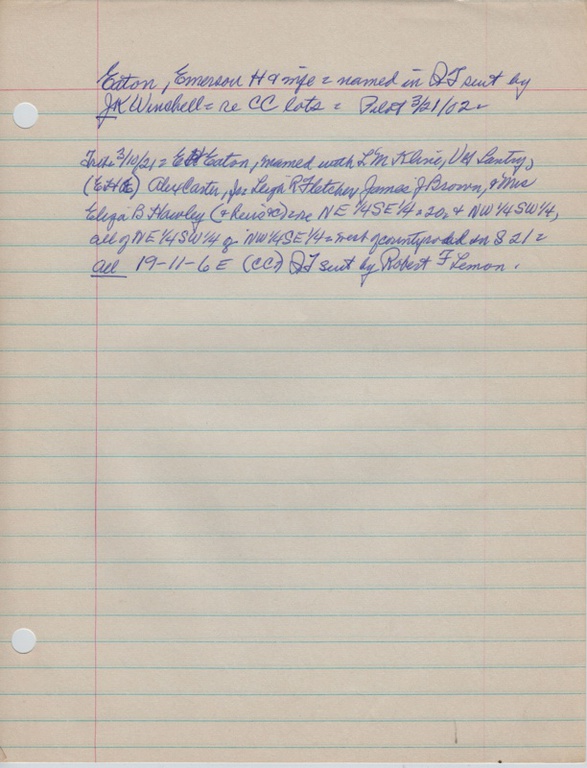 Eaton, Emerson H & wife = named in QT suit by
JK Winchell = re CC lots = Pilot 3/21/02 =
3/10/21 = EH Eaton, named with L M Kline, VM Santry,
(EHE) Alex Carter, Leigh R Fletcher, James J Brown, & Mrs
Eliza B Hawley (& heirs &c) = re NE 1/4 SE 1/4 = 20, & NW 1/4 SW 1/4,
all of NE 1/4 SW 1/4 NW 1/4 SE 1/4 = west of county road in S 21 =
all 19-11-6 E (CC?) QT suit by Robert F Lemon.